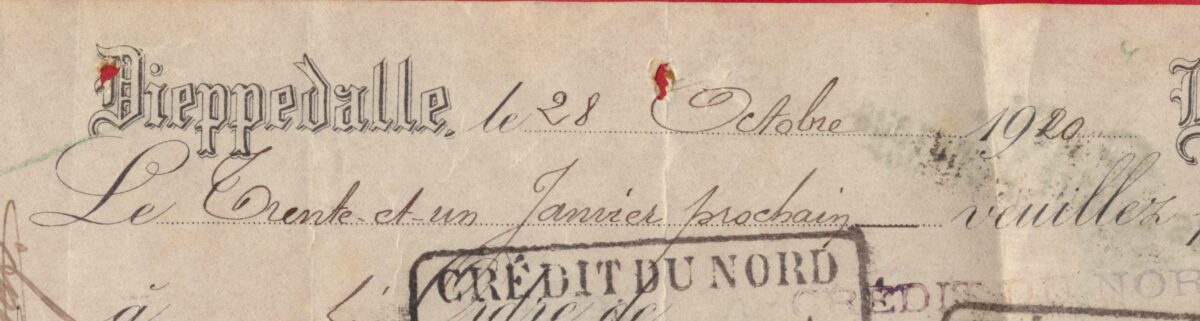 Dieppedalle, le 28 Octobre 1920
Le Trente-et-un Janvier prochain veuillez
CRÉDIT DU NORD
CRÉDIT DU NOR
à l'Ordre de